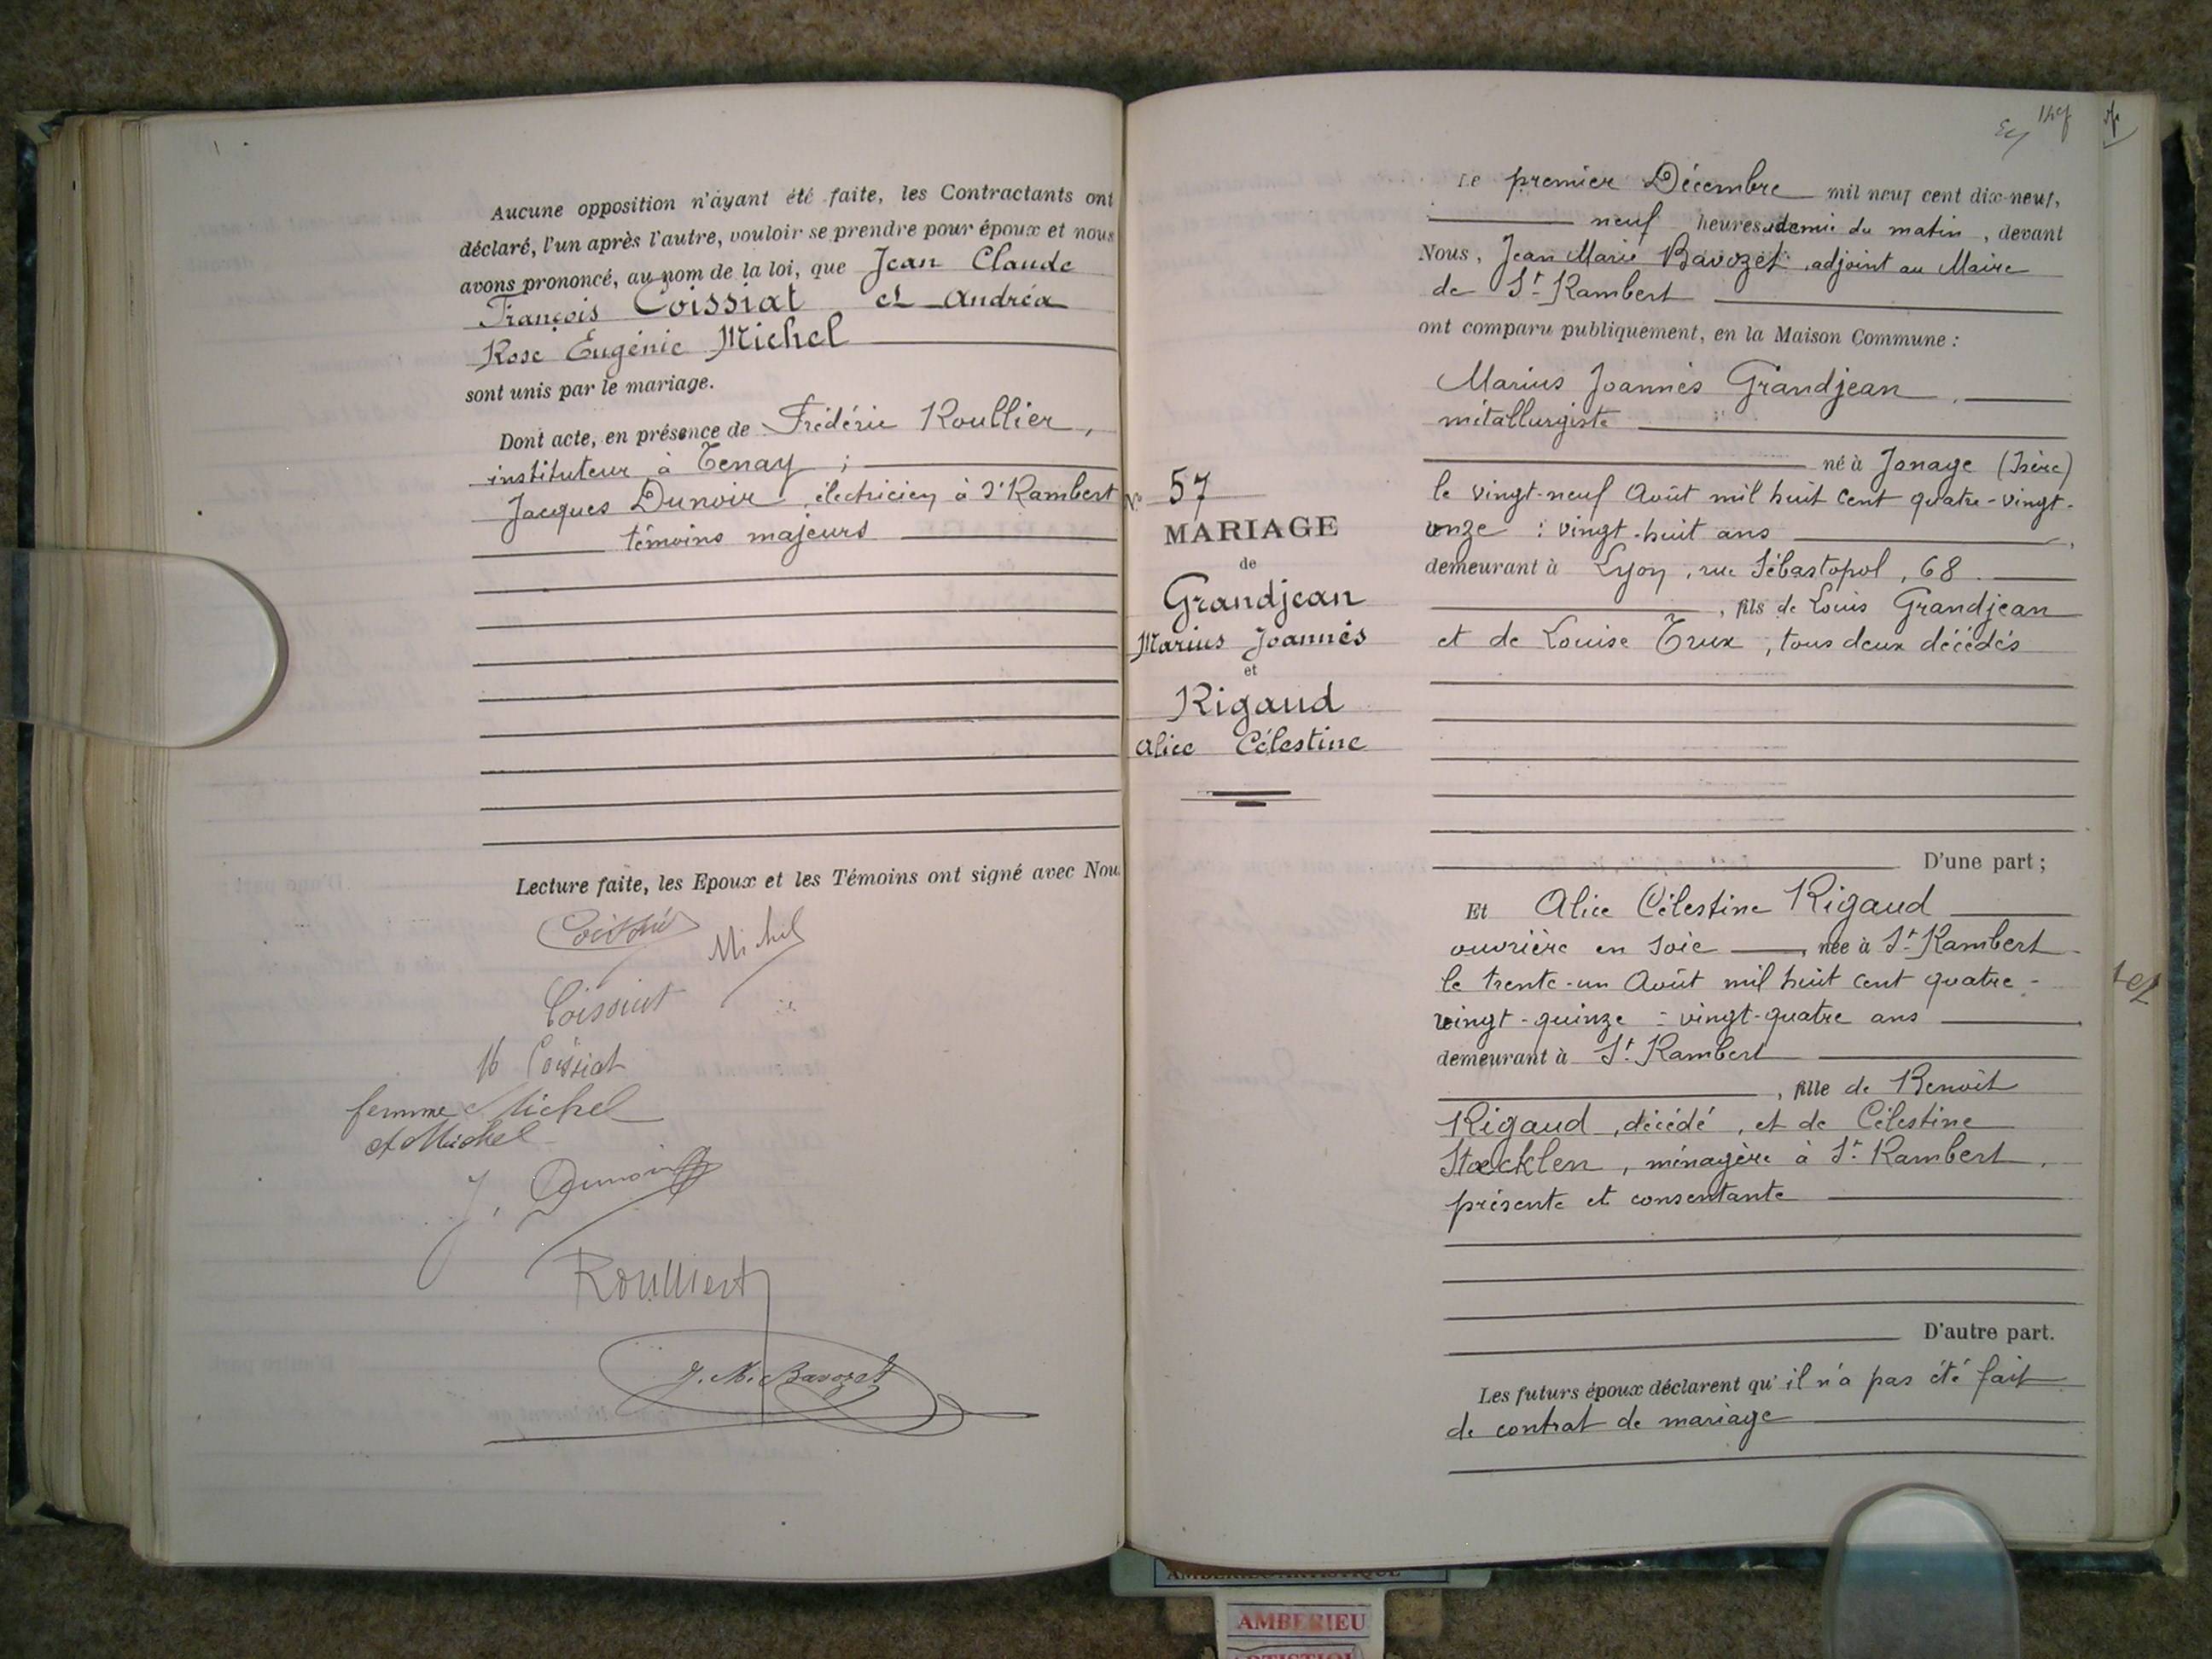 Aucune opposition n'ayant été faite, les Contractants ont
déclaré, l'un après l'autre, vouloir se prendre pour époux et nous
avons prononcé, au nom de la loi, que Jean Claude
François Coissiat et Andréa
Rose Eugénie Michel
sont unis par le mariage.
Dont acte, en présence de Frédéric Roullier,
instituteur à Tenay ;
Jacques Dunoir, électricien à St Rambert
témoins majeurs
Lecture faite, les Epoux et les Témoins ont signé avec Nou
Michel
Coissiat
Coissiat
femme Michel
Michel
J. Dunoir
Roullier
J. M. Bavozet
No 57
MARIAGE
de
Grandjean
Marius Joannès
et
Rigaud
Alice Célestine
Le premier Décembre mil neuf cent dix-neuf,
neuf heures et demie du matin, devant
Nous, Jean Marie Bavozet, adjoint au Maire
de St Rambert
ont comparu publiquement, en la Maison Commune :
Marius Joannès Grandjean,
métallurgiste
né à Jonage (Isère)
le vingt-neuf Août mil huit cent quatre-vingt-
onze : vingt-huit ans,
demeurant à Lyon, rue Sébastopol, 68
, fils de Louis Grandjean
et de Louise Trux, tous deux décédés
D'une part ;
Et Alice Célestine Rigaud
ouvrière en soie, née à St Rambert
le trente-un Août mil huit cent quatre-
vingt-quinze : vingt-quatre ans
demeurant à St Rambert
, fille de Benoît
Rigaud, décédé, et de Célestine
Stœcklen, ménagère à St Rambert,
présente et consentante
D'autre part.
Les futurs époux déclarent qu'il n'a pas été fait
de contrat de mariage
AMBERIEU ARTISTIQUE
AMBERIEU